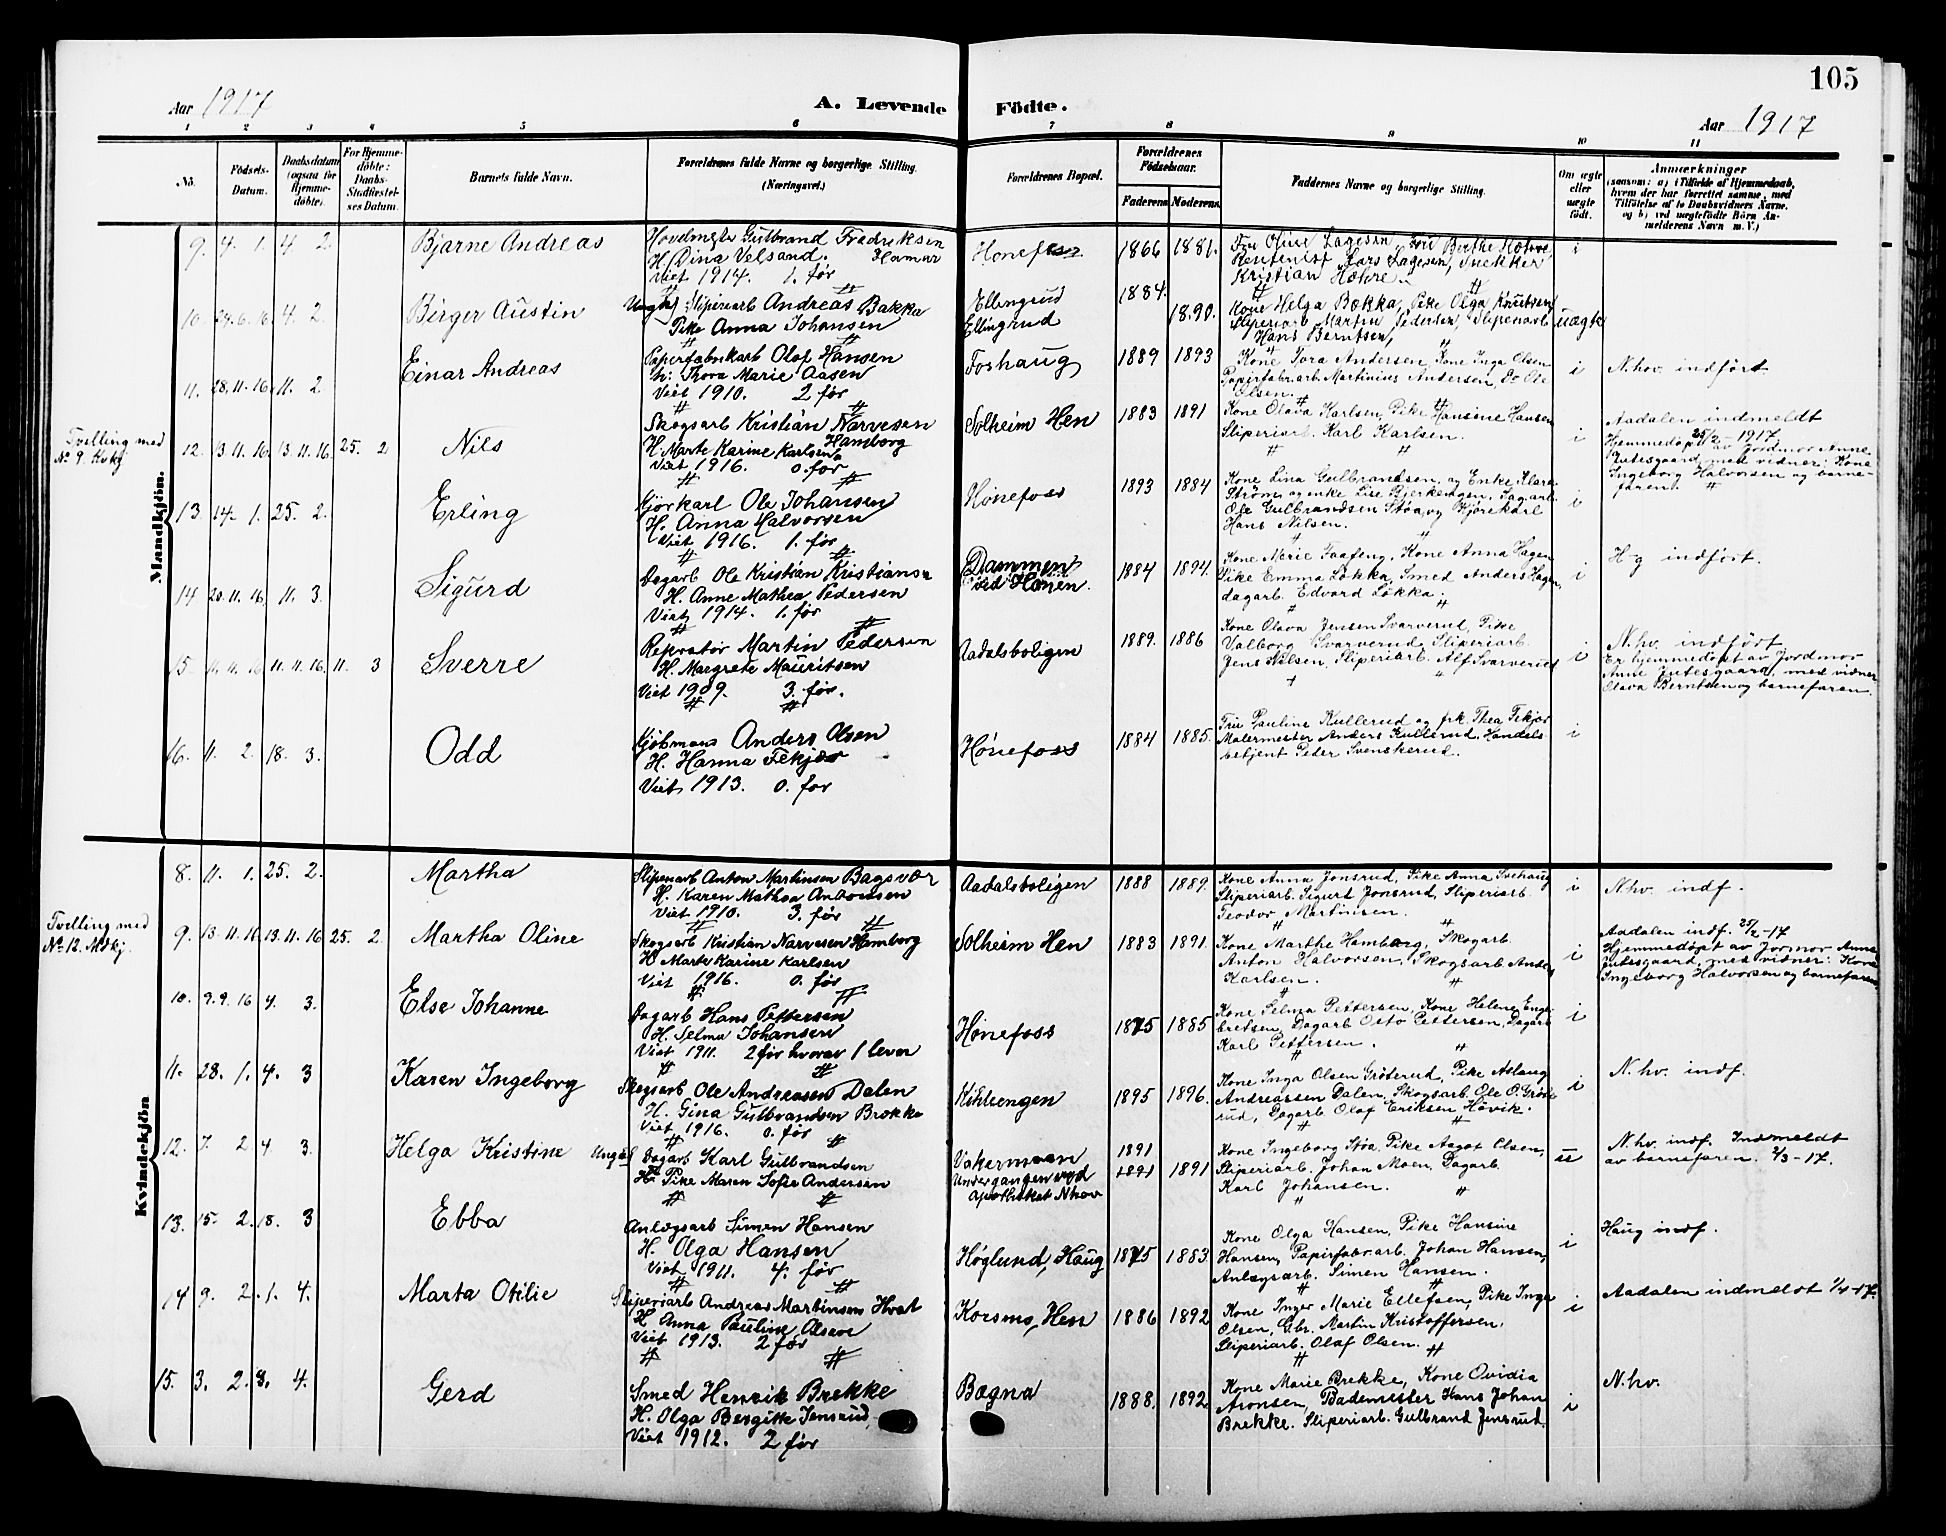 105
Aar 1917
A. Levende Födte.
Aar 1917
1 2 3 4 5 6 7 8 9 10 11
No.
Födsels-Datum.
Daabsdatum (ogsaa for Hjemme-döbte).
For Hjemme-döbte: Daabs-Stadfæstel-ses Datum.
Barnets fulde Navn.
Forældrenes fulde Navne og borgerlige Stilling. (Næringsvei.)
Forældrenes Bopæl.
Forældrenes Födselsaar.
Faderens Moderens
Faddernes Navne og borgerlige Stilling.
Om ægte eller uægte födt.
Anmærkninger
(saasom: a) i Tilfælde af Hjemmedaab, hvem der har forrettet samme, med Tilföielse af to Daabsvidners Navne, og b) ved uægtefödte Börn An-melderens Navn m. V.)
Mandkjön.
9. 4. 1. 4 2. Bjarne Andreas
Gulbrand Fredriksen
H. Dina Velsand. Hamar
Viet 1914. 1. før
Hønefoss 1866 1881.
Kristian Hæhre.
i
10. 24. 6. 16. 4. 2. Birger Austin
Sliperiarb Andreas Bakka
Pike Anna Johansen
Ellingrud
Ellingrud
1884.
1890.
Kone Helga Bakka, Pike Olga Knutsen
Sliperiarb Martin Pedersen, Sliperiarb
Hans Berntsen,
uægte
11. 28. 11. 16. 11. 2. Einar Andreas
Papirfabrikarb Olaf Hansen
H. Thora Marie Aasen
Viet 1910. 2 før
Foshaug 1889 1893
Kone Tora Andersen, Kone Inga Olsen
Papirfabr.arb. Martinius Andersen, Do Ole
Olsen.
i
N.hov. indført
Tvelling med
No 9. Kvkj.
12. 13. 11. 16. 13. 11. 16. 25. 2 Nils
Skogsarb Kristian Narvesen
Hamborg
H. Marte Karine Karlsen
Viet 1916. 0. før
Solheim Hen 1883 1891
Kone Olava Karlsen, Pike Hansine Hansen
Sliperiarb. Karl Karlsen.
i
Aadalen indmeldt
25/2-1917
Hjemmedøpt av Jordmor Anne
Jutesgaard med vidner: Kone
Ingeborg Halvorsen og barne-
faren.
13. 14. 1. 25. 2. Erling
Kjørkarl Ole Johansen
H. Anna Halvorsen
Viet 1916. 1. før
Hønefoss 1893 1884
Kone Lina Gulbrandsen, og Enke Klara
Strøm og enke Lise Gjerkengen, Sagarb.
Ole Gulbrandsen Støa, og Kjørekarl
Hans Nilsen.
i
14 20. 11. 16 11. 3. Sigurd
Dagarb Ole Kristian Kristiansen
H. Anne Mathea Pedersen
Viet 1914. 1. før
Dammen
ved Hønen.
1884 1894.
Kone Marie Taafeng, Kone Anna Hagen
Pike Emma Løkka, Smed Anders Hagen,
dagarb. Edvard Løkka.
i
H-g indført.
15 11. 11. 16 11. 11. 16. 11. 3 Sverre
Reparatør Martin Pedersen
H. Margrete Mauritsen
Viet 1909. 3. før.
Aadalsboligen 1889. 1886
Kone Olava Jensen Svarverud, Pike
Valborg Svarverud, Sliperiarb.
Jens Nilsen, Sliperiarb. Alf Svarverud
i
N.hv. indført
Er hjemmedøpt av Jordmor
Anne Jutesgaard, med vidner
Olava Berntsen og barnefaren.
16. 11. 2. 18. 3. Odd
Kjøbmann Anders Olsen
H. Hanna Fekjær
Viet 1913. 0. før
Hønefoss 1884 1885.
Fru Pauline Kullerud og frk. Thea Fekjær
Malermester Anders Kullerud, Handels-
betjent Peder Svenskerud.
i
Kvindekjön
8. 11. 1. 25. 2. Martha
Sliperiarb Anton Martinsen Bagsvær
H. Karen Mathea Antonsen
Viet 1910. 3. før
Aadalsboligen 1888 1889.
Kone Anna Jonsrud, Pike Anna
Sliperiarb. Sigurt Jonsrud, Sliperiarb.
Teodor Martinsen.
i
N.hv. indf.
Tvelling med
No 12. Mdkj.
9. 13. 11. 16 13. 11. 16 25. 2. Martha Oline
Skogsarb Kristian Narvesen Hamborg
H Marte Karine Karlsen
Viet 1916. 0. før
Solheim Hen 1883 1891.
Kone Marthe Hamborg, Skogarb.
Anton Halvorsen, Skogsarb Anders
Karlsen.
i
Aadalen indf. 25/2-17
Hjemmedøpt av Jormor Anna
Jutesgaard, med vidner: Kone
Ingeborg Halvorsen og barnefaren
10. 9. 9. 16 4. 3. Else Johanne
Dagarb Hans Pettersen
H. Selma Johansen
Viet 1911. 2 før hvorav 1 lever
Hønefoss 1875 1885
Kone Selma Pettersen, Kone Helene Enge-
bretsen, Dagarb Otto Pettersen, Dagarb
Karl Pettersen.
i
11. 28. 1. 4. 3 Karen Ingeborg
Skogsarb Ole Andreasen Dalen
H. Gina Gulbrandsen Brekke
Viet 1916. 0. før
1895 1896.
Kone Inga Olsen Grøterud, Pike Aslaug
Andreassen Dalen, Skogsarb. Ole O. Grøte-
rud, Dagarb Olaf Eriksen Høvik.
i
N.hv. indf.
12. 7. 2 4 3. Helga Kristine
Dagarb Karl Gulbrandsen
Pike Maren Sofie Andersen
Vakermoen
Undergangen ved
Apotheket Nhov
1891
1891 1891
Kone Ingeborg Støa, Pike Aagot Olsen,
Sliperiarb. Johan Moen, Dagarb.
Karl Johansen.
u
N.hv. indf. Indmeldt
av barnefaren. 2/3-17.
13. 15. 2. 18. 3 Ebba
Anlægsarb Simen Hansen
H. Olga Hansen
Viet 1911. 4. før
Høglund, Haug 1875 1883.
Kone Olga Hansen, Pike Hansine
Hansen, Papirfabr.arb. Johan Hansen,
Anlægsarb. Simen Hansen.
i
Haug indf.
14 9. 2. 1. 4. Marta Otilie
Sliperiarb Andreas Martinsen Hval
H Anna Pauline Olsen
Viet 1913. 2 før
Korsmo, Hen 1886 1892
Kone Inger Marie Ellefsen, Pike Inga
Olsen, Gbr. Martin Kristoffersen,
Sliperiarb. Olaf Olsen.
i
Aadalen indmeldt 1/4-17.
15. 3. 2. 8. 4. Gerd
Smed Henrik Brekke
H. Olga Bergitte Jensrud
Viet 1912. 2 før
Bægna 1888. 1892
Kone Marie Brekke, Kone Ovidia
Aronsen, Bademester Hans Johan
Brekke. Sliperiarb. Gulbrand Jensrud.
i
N.hv.